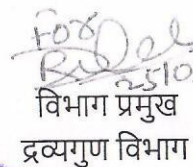 For
विभाग प्रमुख
द्रव्यगुण विभाग